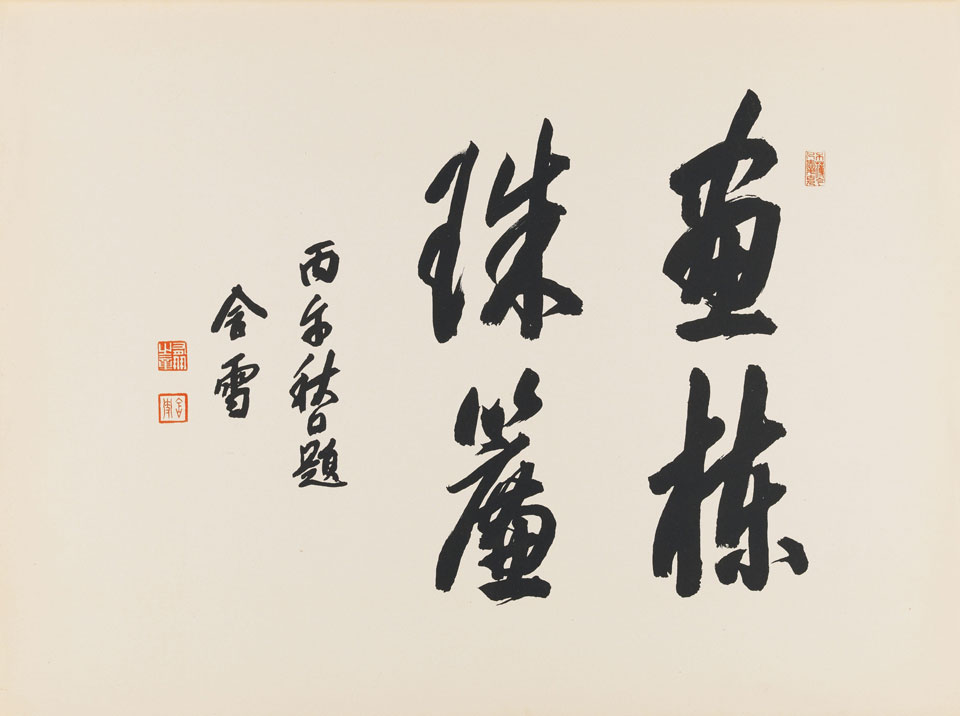 畫棟
珠簾
丙午秋日題
含雪